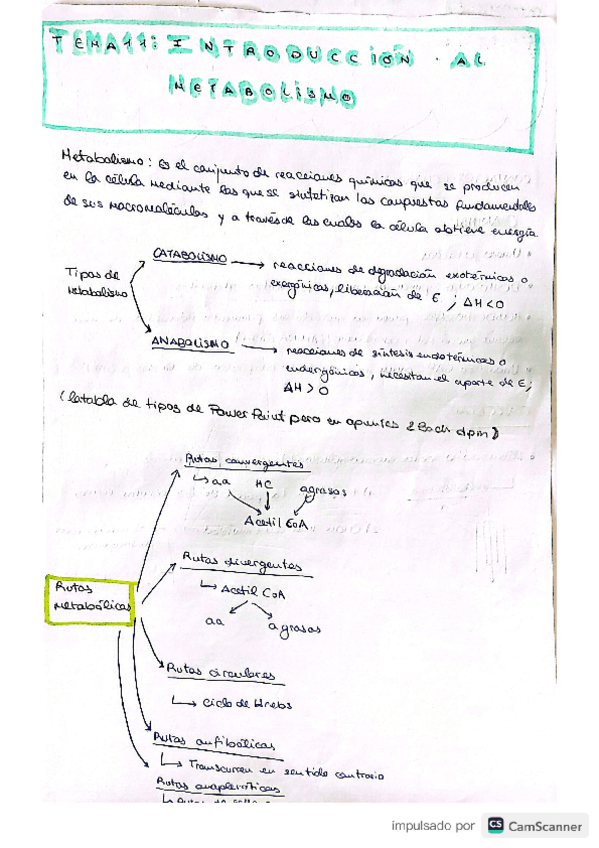 TEMA 11: INTRODUCCIÓN AL
METABOLISMO
Metabolismo: Es el conjunto de reacciones químicas que se producen
en la célula mediante las que se sintetizan los compuestos fundamentales
de sus macromoléculas y a través de las cuales la célula obtiene energía
CATABOLISMO → reacciones de degradación exotérmicas o
exergónicas, liberación de E ; ΔH<0
Tipos de
Metabolismo
ANABOLISMO → reacciones de síntesis endotérmicas o
endergónicas, necesitan el aporte de E;
ΔH > 0
(la tabla de tipos de PowerPoint pero en apuntes 2Bach dpm)
Rutas convergentes
aa HC agrasos
Acetil CoA
Rutas divergentes
Acetil CoA
aa agrasos
Rutas
Metabólicas
Rutas circulares
Ciclo de Krebs
Rutas anfibólicas
Transcurren en sentido contrario
Rutas anapleróticas
impulsado por CS CamScanner